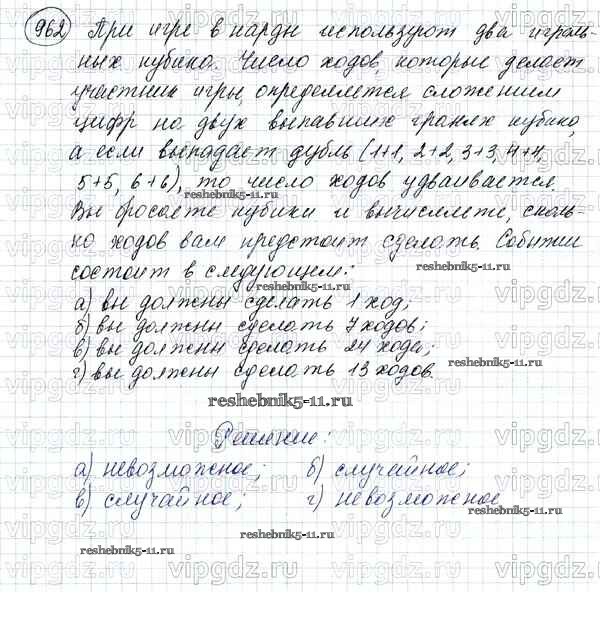 962 При игре в нарды используют два играль-
ных кубика. Число ходов, которые делает
участник игры, определяется сложением
цифр на двух выпавших гранях кубика,
а если выпадает дубль (1+1, 2+2, 3+3, 4+4,
5+5, 6+6), то число ходов удваивается.
reshebnik5-11.ru
Вы бросаете кубики и вычисляете, сколь-
ко ходов вам предстоит сделать. Событие
состоит в следующем:
reshebnik5-11.ru
а) вы должны сделать 1 ход;
б) вы должны сделать 7 ходов;
в) вы должны сделать 24 хода;
г) вы должны сделать 13 ходов.
reshebnik5-11.ru
reshebnik5-11.ru
Решение:
а) невозможное; б) случайное;
в) случайное; г) невозможное
reshebnik5-11.ru
reshebnik5-11.ru
vipgdz.ru